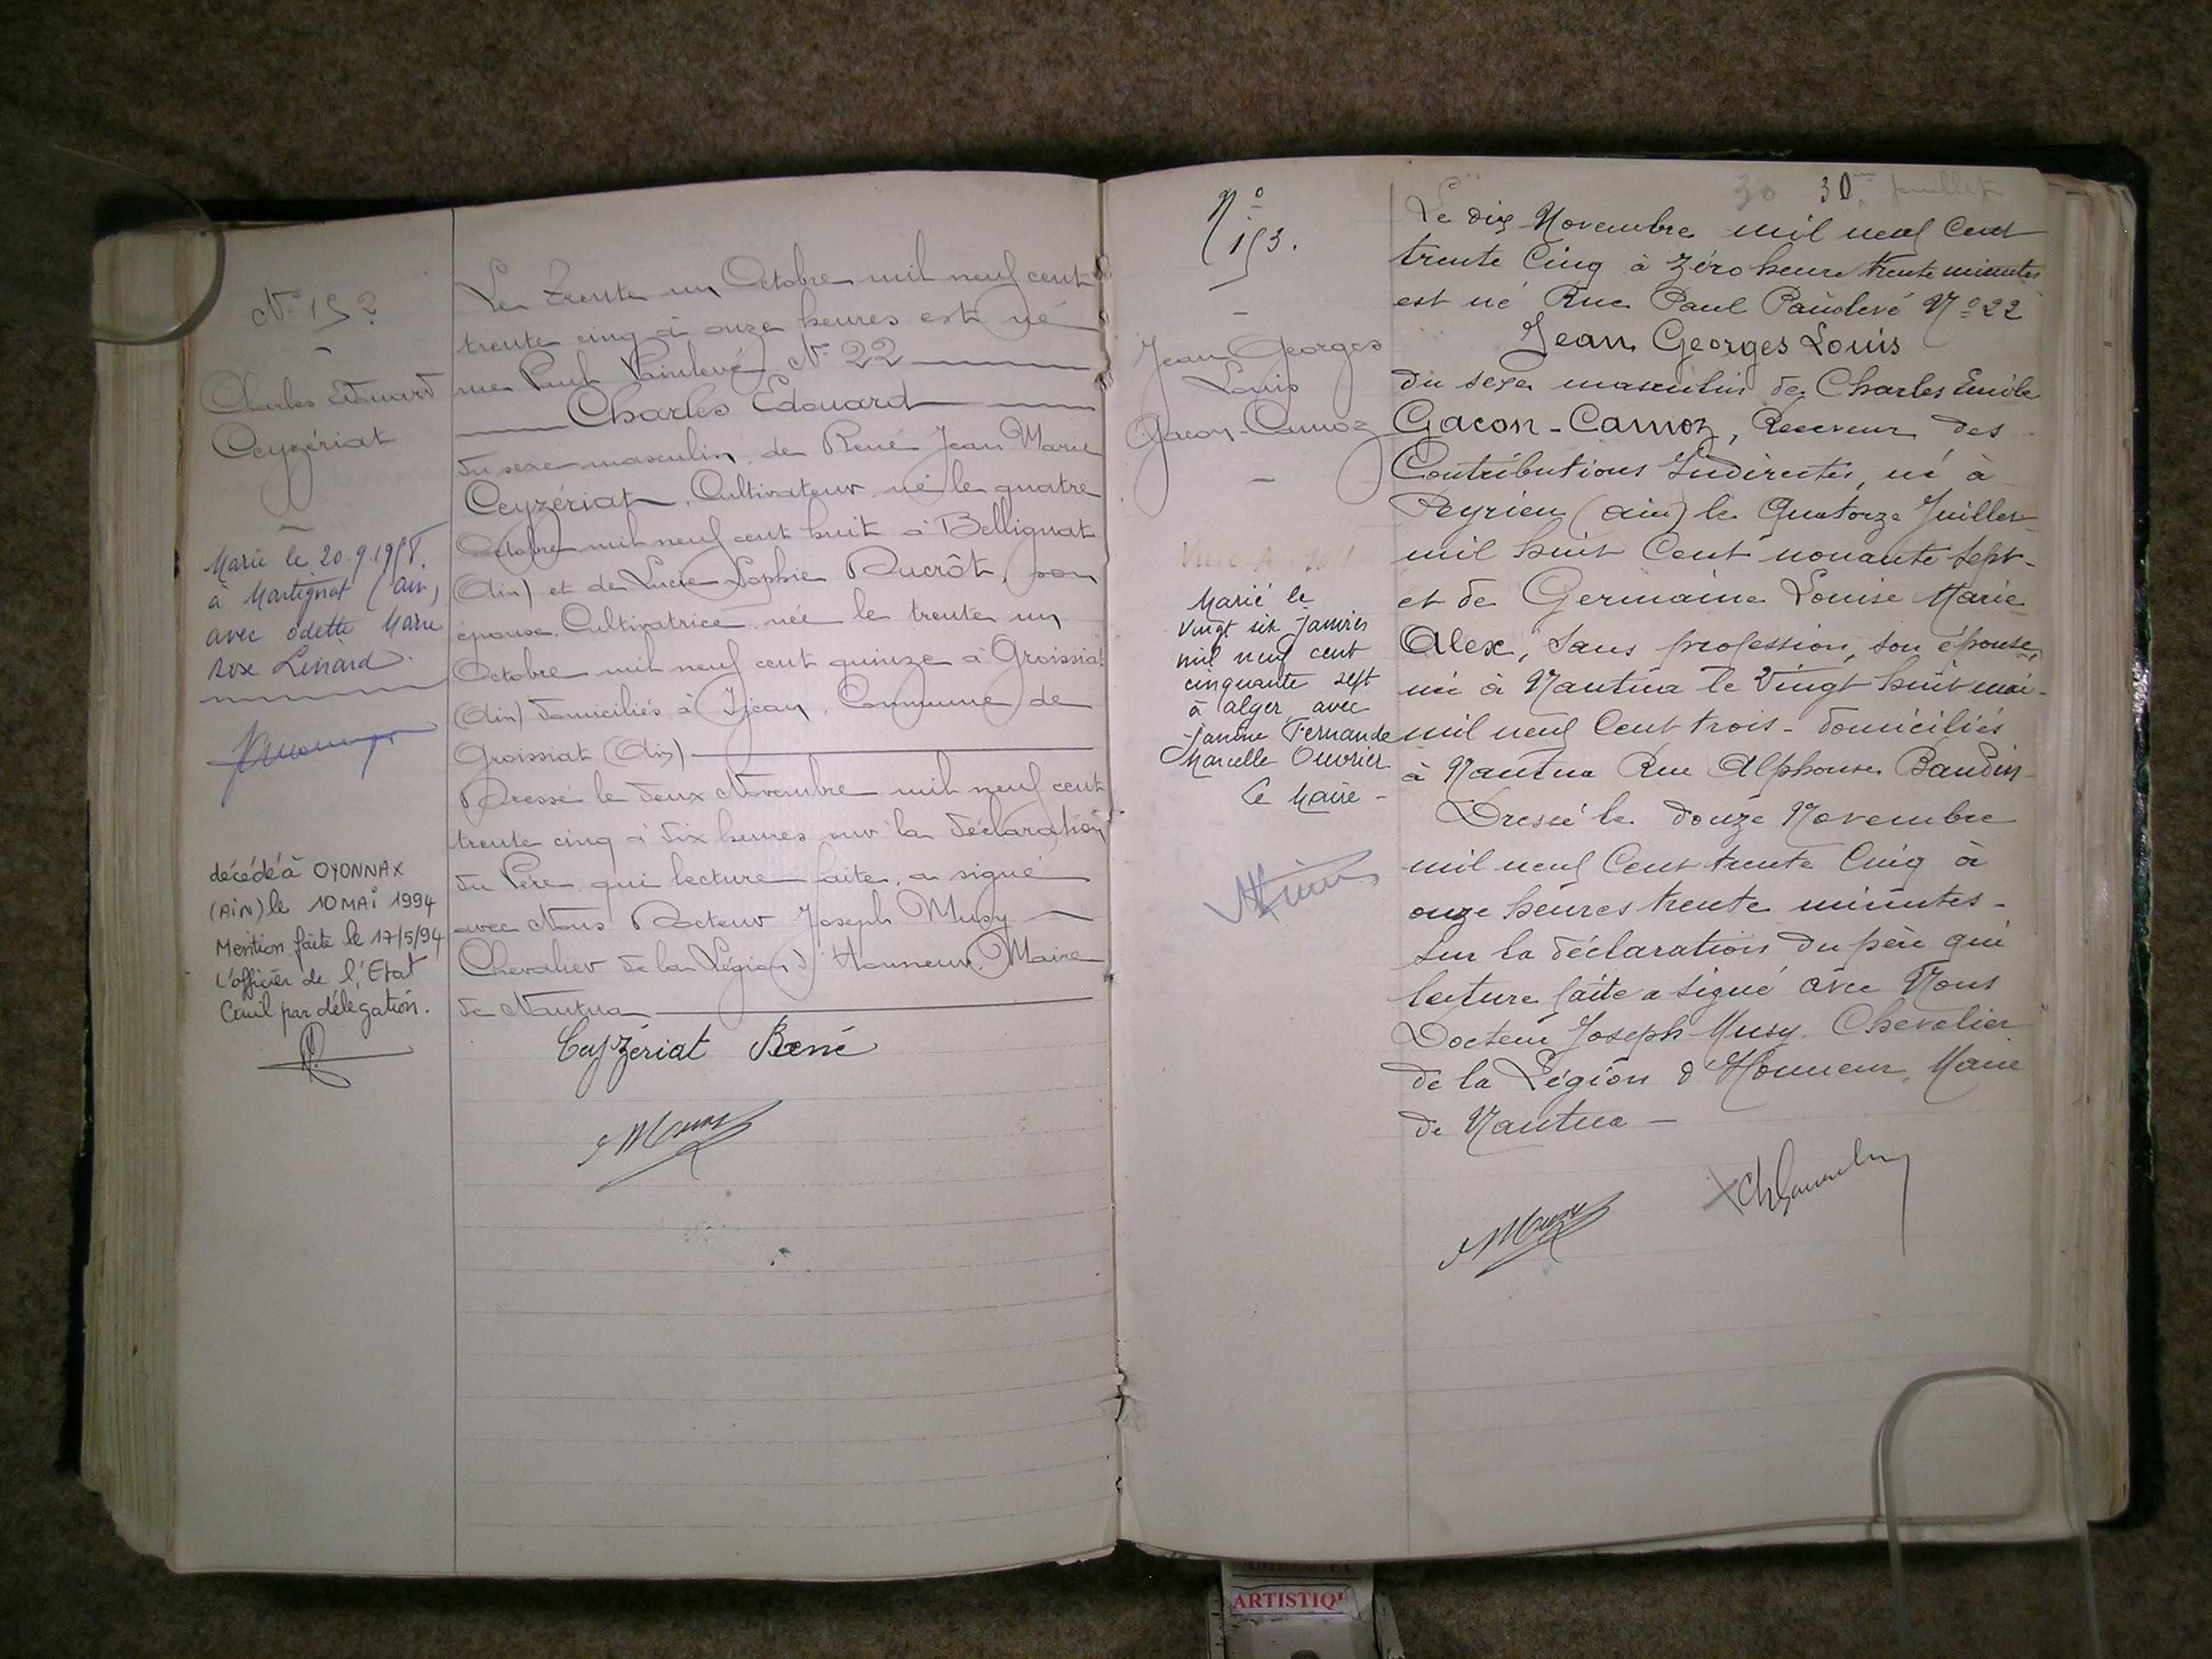 Charles Edouard
Ceyzériat
Marié le 20.9.1958.
à Martignat (ain)
avec odette Marie
rose Linard.
décédé à OYONNAX
(AiN) le 10 MAI 1994
Mention faite le 17/5/94
L'officier de l'Etat
Civil par délégation.
Le trente un Octobre mil neuf cent
trente cinq à onze heures est né
rue Paul Painlevé N° 22
Charles Edouard
du sexe masculin, de René Jean Marie
Ceyzériat, Cultivateur, né le quatre
Octobre mil neuf cent huit à Bellignat
(Ain) et de Lucie Sophie Ducrôt, son
épouse, Cultivatrice, née le trente un
Octobre mil neuf cent quinze à Groissiat
(Ain) domiciliés à , Commune de
Groissiat (Ain)
Dressé le deux Novembre mil neuf cent
trente cinq à dix heures sur la déclaration
du Père, qui lecture faite, a signé
avec Nous Docteur Joseph Musy
Chevalier de la Légion d'Honneur, Maire
de Nantua
Ceyzériat René
30 30me feuillet
N°
153.
Jean Georges
Louis
Gacon-Camoz
Marié le
vingt six janvier
mil neuf cent
cinquante sept
à alger avec
Janine Fernande
Marcelle Ouvrier
Le Maire -
Le dix Novembre mil neuf Cent
trente Cinq à zéro heure trente minutes
est né Rue Paul Painlevé N° 22
Jean Georges Louis
du sexe masculin de Charles Emile
Gacon-Camoz, Receveur des
Contributions Indirectes, né à
Peyrieu (ain) le Quatorze Juillet
mil huit Cent nonante sept -
et de Germaine Louise Marie
Alex, Sans profession, son épouse,
née à Nantua le Vingt huit mai -
mil neuf Cent trois - domiciliés
à Nantua Rue Alphonse Baudin -
Dressé le douze Novembre
mil neuf Cent trente Cinq à
onze heures trente minutes -
sur la déclaration du père qui
lecture faite a signé avec Nous
Docteur Joseph Musy, Chevalier
de la Légion d'Honneur, Maire
de Nantua -
ARTISTIQ